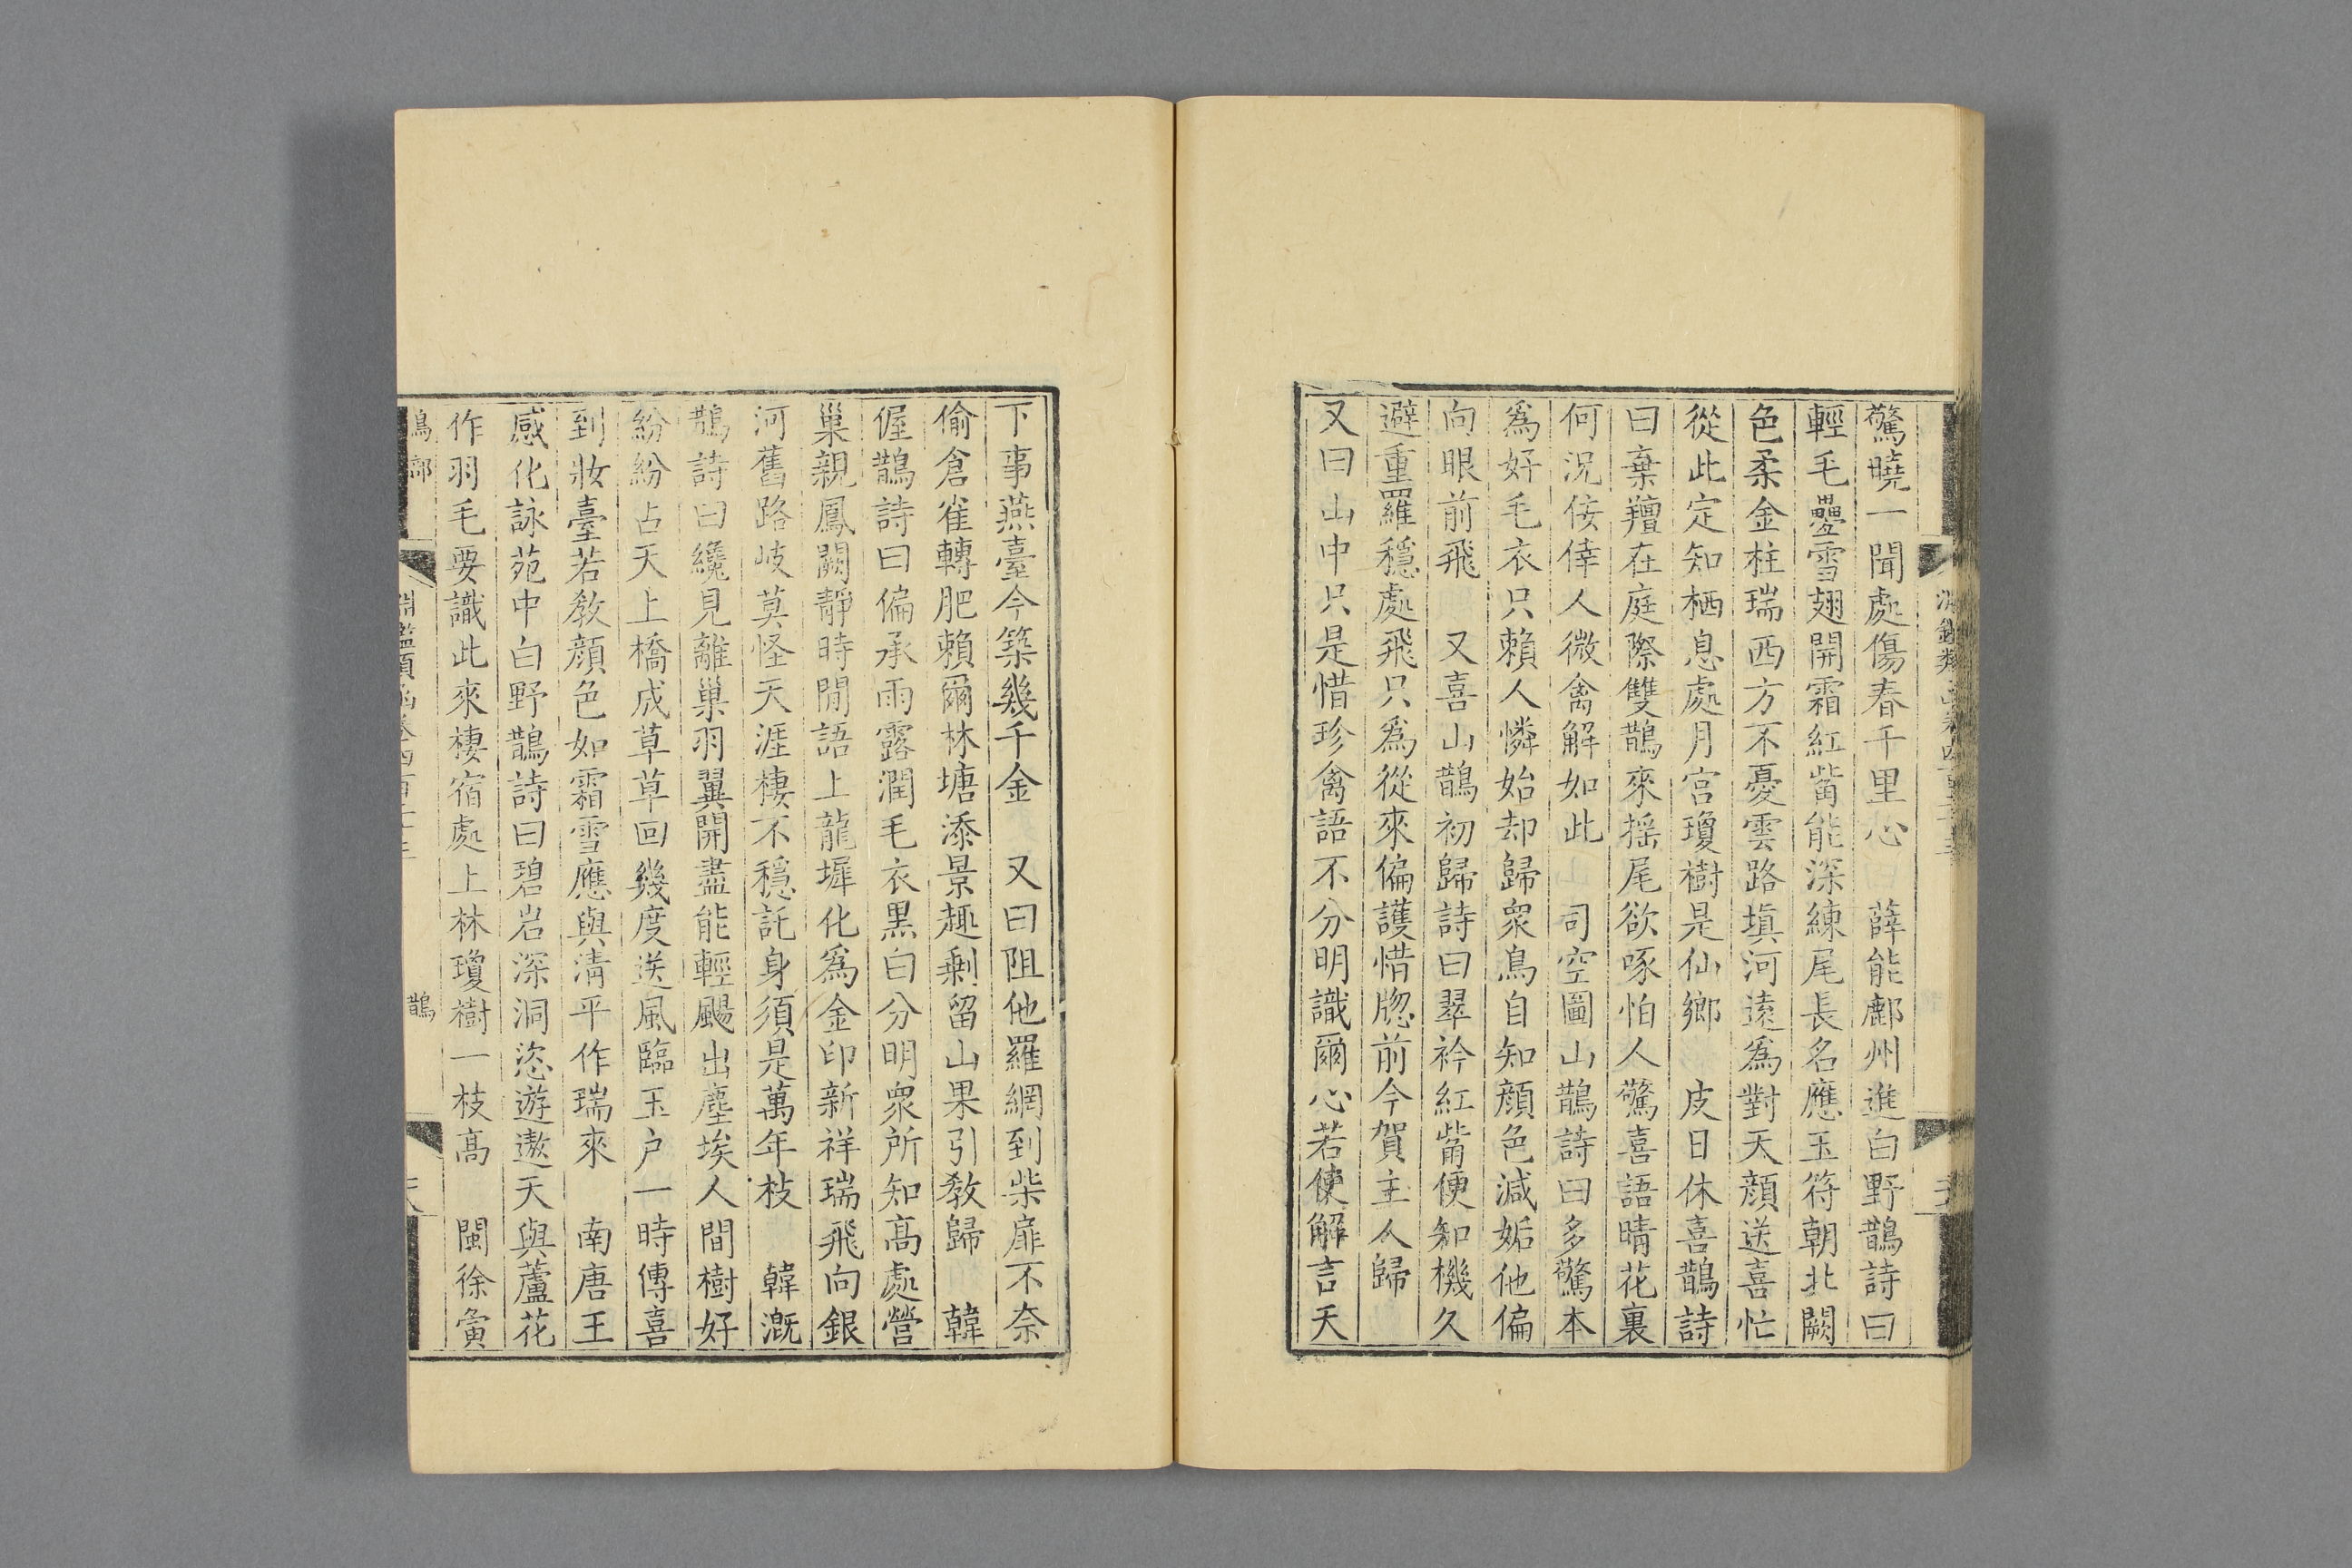 驚曉一聞處傷春千里心　薛能鄜州進白野鵲詩曰
輕毛疊雪翅開霜紅觜能深練尾長名應玉符朝北闕
色柔金柱瑞西方不憂雲路塡河遠為對天顔送喜忙
從此定知栖息處月宮瓊樹是仙鄉　皮日休喜鵲詩
曰棄羶在庭際雙鵲來搖尾欲啄怕人驚喜語晴花裏
何況佞倖人微禽解如此　司空圖山鵲詩曰多驚本
為好毛衣只賴人憐始却歸衆鳥自知顔色減妬他偏
向眼前飛　又喜山鵲初歸詩曰翠衿紅觜便知機久
避重羅穩處飛只為從來偏護惜牕前今賀主人歸
又曰山中只是惜珍禽語不分明識爾心若使解言天
下事燕臺今築幾千金　又曰阻他羅網到柴扉不奈
偷倉雀轉肥賴爾林塘添景趣剩留山果引教歸　韓
偓鵲詩曰偏承雨露潤毛衣黑白分明衆所知高處營
巢親鳳闕靜時閒語上龍墀化為金印新祥瑞飛向銀
河舊路岐莫怪天涯棲不穩託身須是萬年枝　韓溉
鵲詩曰纔見離巢羽翼開盡能輕颺出塵埃人間樹好
紛紛占天上橋成草草回幾度送風臨玉户一時傳喜
到妝臺若教顔色如霜雪應與清平作瑞來　南唐王
感化詠苑中白野鵲詩曰碧岩深洞恣遊遨天與蘆花
作羽毛要識此來棲宿處上林瓊樹一枝高　閩徐夤
鵲